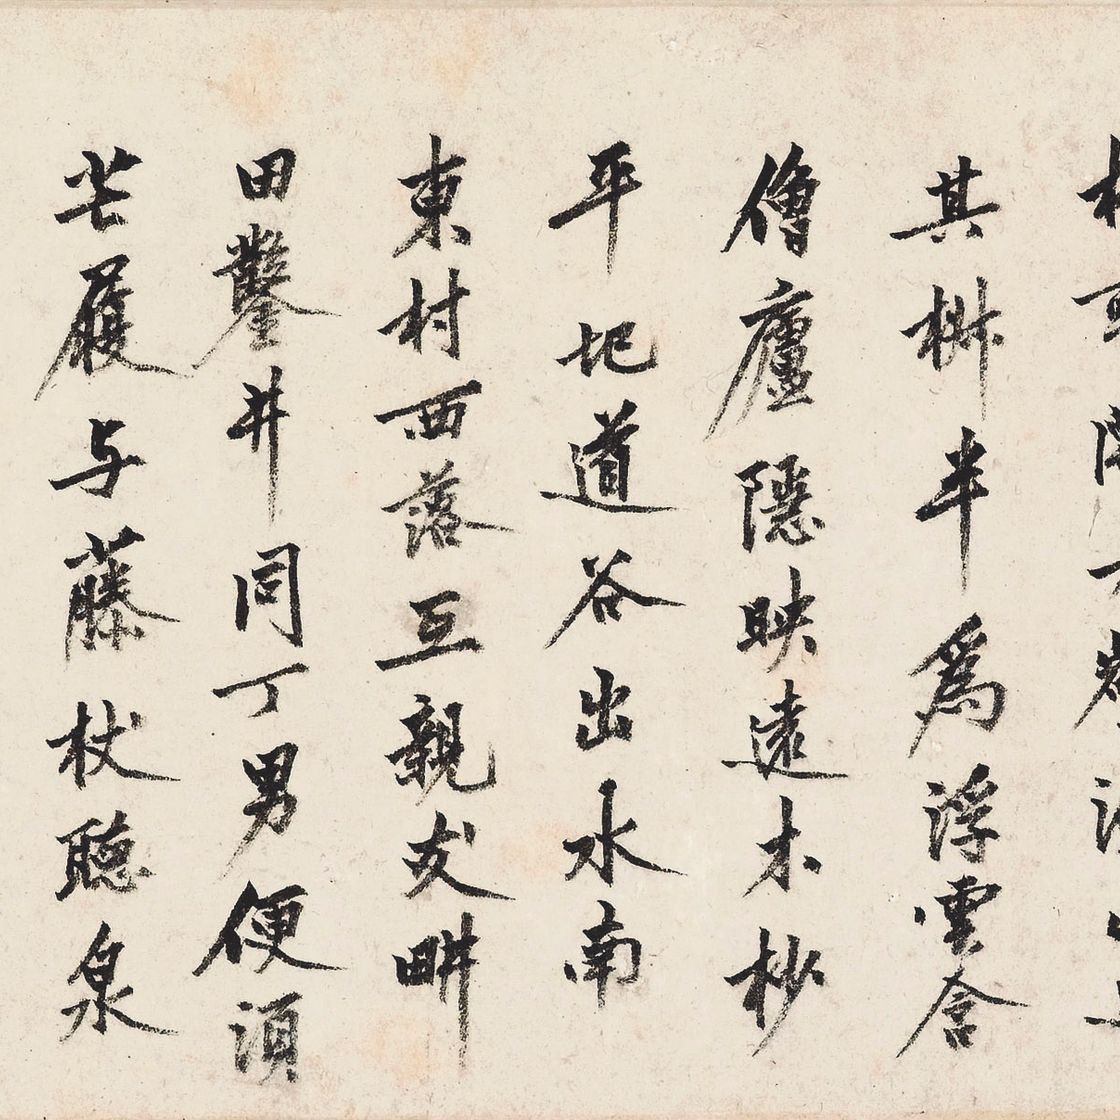 其樹半爲浮雲含
僧廬隱映遠木杪
平地道谷出水南
東村西落互親友畊
田鑿井同丁男便須
芒屨与藤杖聽泉